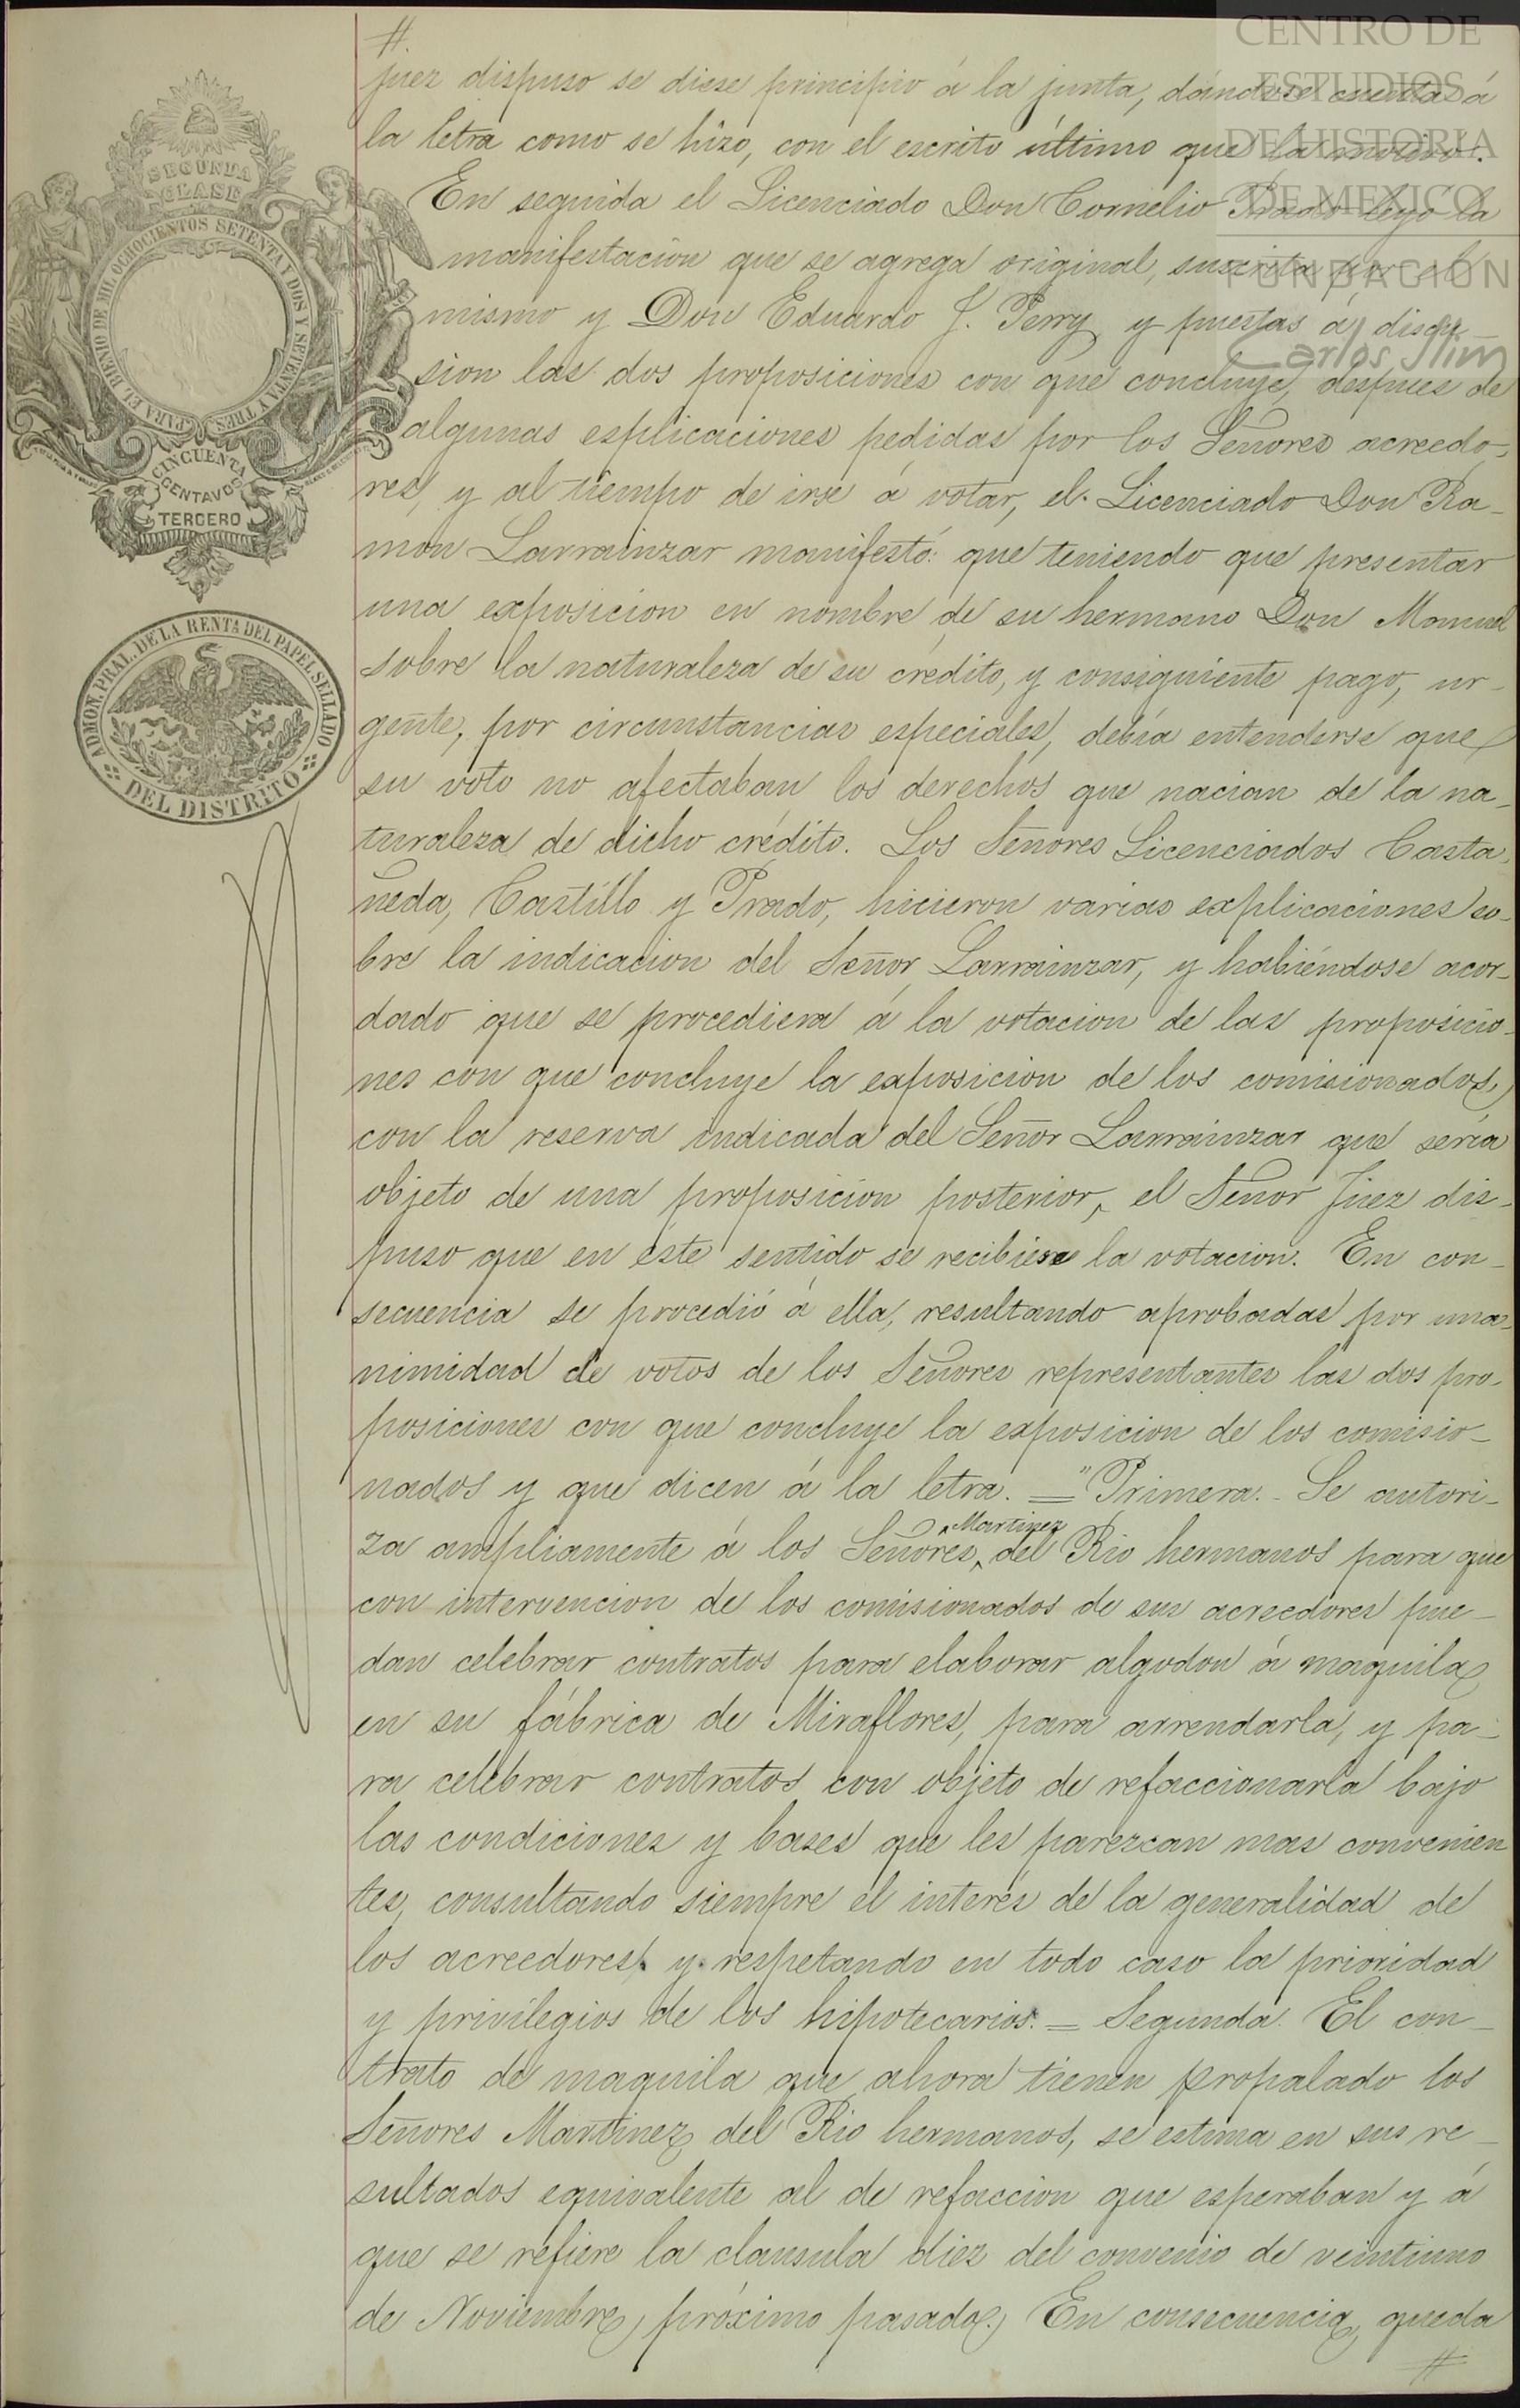 CENTRO DE
ESTUDIOS
DE HISTORIA
DE MEXICO
FUNDACIÓN
Carlos Slim
SEGUNDA
CLASE
PARA EL BIENIO DE MIL OCHOCIENTOS SETENTA Y DOS Y SETENTA Y TRES
CINCUENTA
CENTAVOS
TERCERO
ADMON. PRAL. DE LA RENTA DEL PAPEL SELLADO
DEL DISTRITO
#.
juez dispuso se diese principio á la junta, dándose cuenta á
la letra como se hizo, con el escrito último que la motivó.
En seguida el Licenciado Don Cornelio Prado leyo la
manifestacion que se agrega original, suscrita por el
mismo y Don Eduardo J. Perry y puestas á discu-
sion las dos proposiciones con que concluye, despues de
algunas esplicaciones pedidas por los Señores acreedo-
res, y al tiempo de irse á votar, el Licenciado Don Ra-
mon Larrainzar manifestó: que teniendo que presentar
una exposicion en nombre de su hermano Don Manuel
sobre la naturaleza de su crédito, y consiguiente pago, ur-
gente, por circunstancias especiales, debía entenderse que
su voto no afectaban los derechos que nacian de la na-
turaleza de dicho crédito. Los Señores Licenciados Casta-
ñeda, Castillo y Prado, hicieron varias explicaciones so-
bre la indicacion del Señor Larrainzar, y habiéndose acor-
dado que se procediera á la votacion de las proposicio-
nes con que concluye la exposicion de los comisionados,
con la reserva indicada del Señor Larrainzar que sería
objeto de una proposicion posterior, el Señor Juez dis-
puso que en este sentido se recibiese la votacion. En con-
secuencia se procedió á ella, resultando aprobadas por una-
nimidad de votos de los Señores representantes las dos pro-
posiciones con que concluye la exposicion de los comisio-
nados y que dicen á la letra. = "Primera.- Se autori-
za ampliamente á los Señores Martinez del Rio hermanos para que
con intervencion de los comisionados de sus acreedores pue-
dan celebrar contratos para elaborar algodon á maquila
en su fábrica de Miraflores, para arrendarla, y pa-
ra celebrar contratos con objeto de refaccionarla bajo
las condiciones y bases que les parezcan mas convenien
tes, consultando siempre el interés de la generalidad de
los acreedores y respetando en todo caso la prioridad
y privilegios de los hipotecarios. = Segunda. El con-
trato de maquila que ahora tienen propalado los
Señores Martinez del Rio hermanos, se estima en sus re-
sultados equivalente al de refaccion que esperaban y á
que se refiere la clausula diez del convenio de veintiuno
de Noviembre próximo pasado. En consecuencia, queda
#